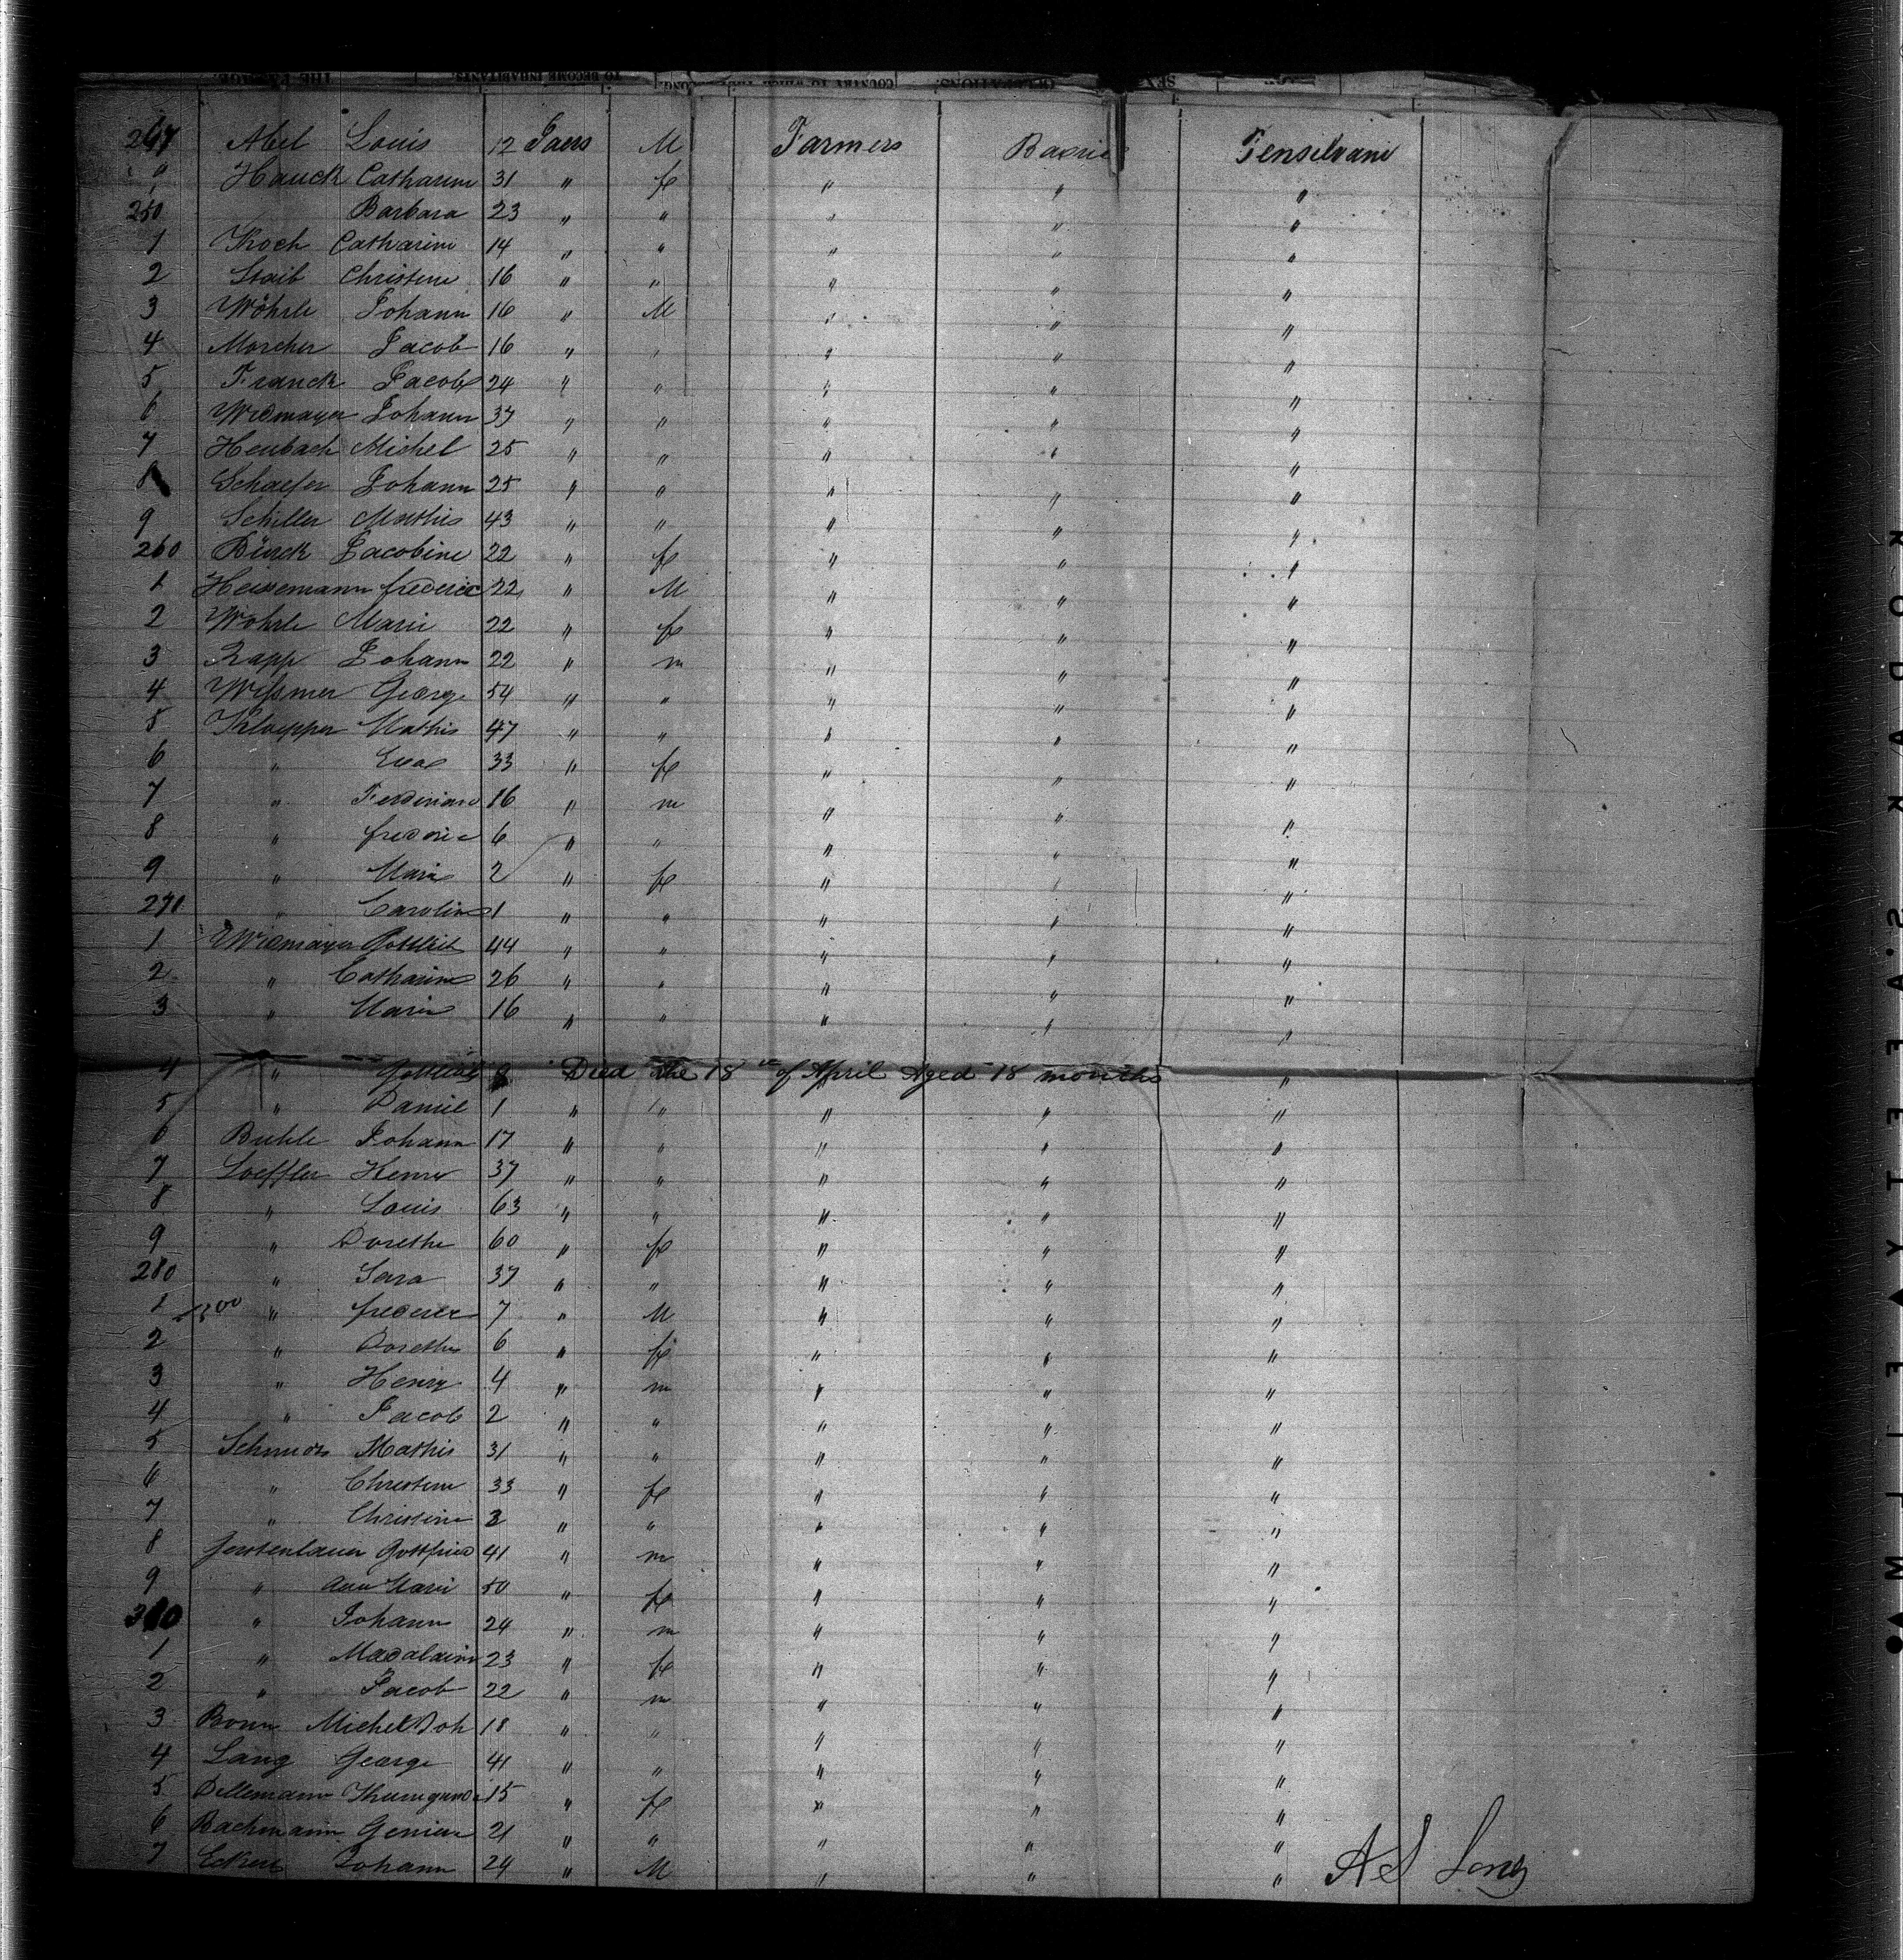 THE PASSAGE. TO BECOME INHABITANTS. COUNTRY TO WHICH THEY OCCUPATIONS. SEX
Abel Louis 12 Jaers M Farmers Bavrie Pensilvani
" Hauck Catharine 31 " fe " " "
250 Barbara 23 " " " " "
1 Koch Catharine 14 " " " " "
2 Staib Christine 16 " " " " "
3 Wöhrle Johann 16 " M " " "
4 Morcher Jacob 16 " " " " "
5 Franck Jacob 24 " " " " "
6 Widmayer Johann 37 " " " " "
7 Heubach Michel 25 " " " " "
8 Schaefer Johann 25 " " " " "
9 Schiller Mathis 43 " " " " "
260 Bürck Jacobine 22 " fe " " "
1 Heisemann frederic 22 " M " " "
2 Wöhrle Marie 22 " fe " " "
3 Rapp Johann 22 " m " " "
4 Wissmer George 54 " " " " "
5 Kloepper Mathis 47 " " " " "
6 " Eva 33 " fe " " "
7 " Ferdinand 16 " m " " "
8 " frederic 6 " " " " "
9 " Marie 2 " fe " " "
270 " Caroline 1 " " " " "
1 Widmayer Gottlieb 44 " " " " "
2 " Catharine 26 " " " " "
3 " Marie 16 " " " " "
4 " Gottlieb Died the 18th of April Aged 18 months "
5 " Daniel 1 " " " " "
6 Buhle Johann 17 " " " " "
7 Loeffler Henri 37 " " " " "
8 " Louis 63 " " " " "
9 " Dorethe 60 " fe " " "
280 " Sara 37 " " " " "
1 " frederic 7 " M " " "
2 " Dorethe 6 " fe " " "
3 " Henry 4 " m " " "
4 " Jacob 2 " " " " "
5 Schmidt Mathis 31 " " " " "
6 " Christine 33 " fe " " "
7 " Christine 3 " " " " "
8 Gerstenlauer Gottfried 41 " m " " "
9 " Ann Marie 50 " fe " " "
" Johann 24 " m " " "
1 " Madalaine 23 " fe " " "
2 " Jacob 22 " m " " "
3 Bonn Michel Joh 18 " " " " "
4 Lang George 41 " " " " "
5 Dellemann Kunigunda 15 " fe " " "
6 Bachmann 21 " " " " "
7 Eckert Johann 24 " M " " "
A S